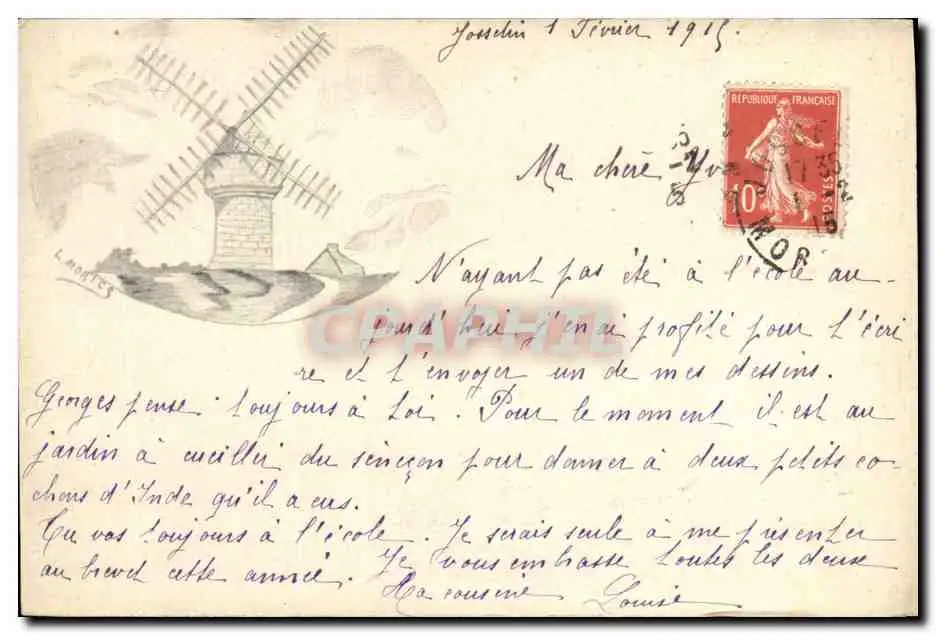 Josselin 1 Février 1915.
REPUBLIQUE FRANÇAISE
10
POSTES
MOR
17 35
Ma chère Yv
L. MORICE
N'ayant pas été à l'école au-
jourd'hui j'en ai profité pour t'écri
re et t'envoyer un de mes dessins.
Georges pense toujours à toi. Pour le moment il est au
jardin à cueillir du sénéçon pour donner à deux petits co-
chons d'Inde qu'il a eus.
Tu vas toujours à l'école. Je serais seule à me présenter
au brevet cette année. Je vous embrasse toutes les deux
Ta cousine Louise
CPAPHIL